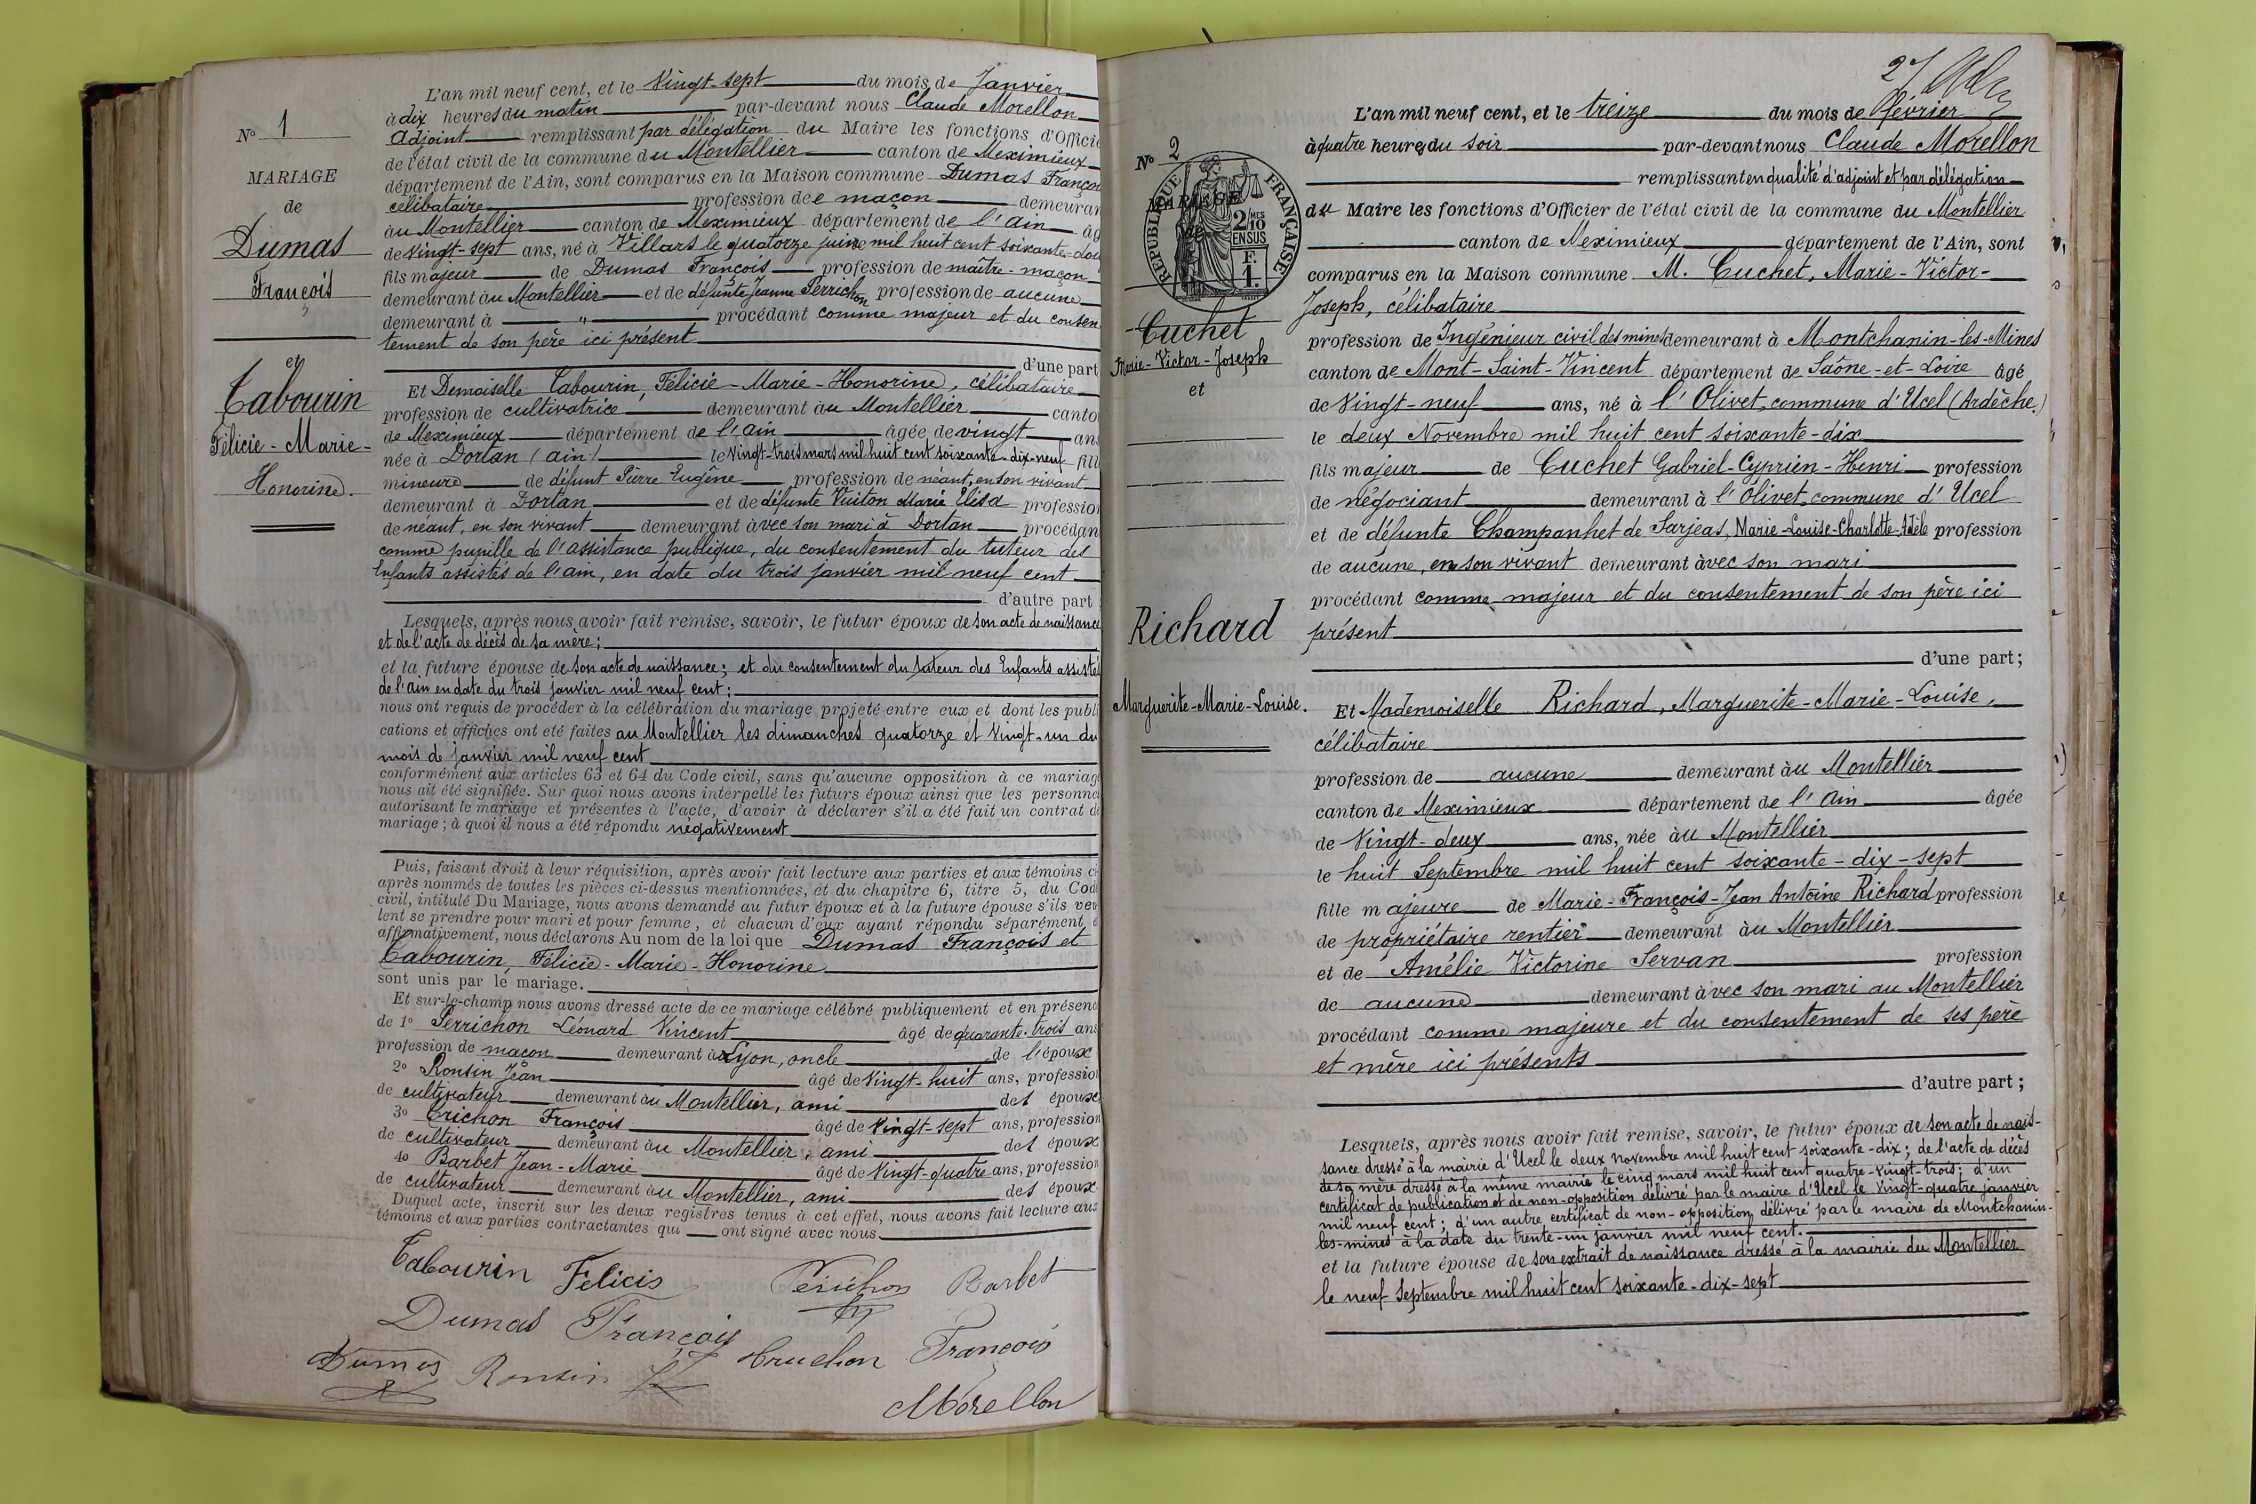 N° 1
MARIAGE
de
Dumas
François
et
Tabourin
Félicie-Marie-
Honorine.
L'an mil neuf cent, et le Vingt-sept du mois de Janvier
à dix heures du matin par-devant nous Claude Morellon
Adjoint remplissant par délégation du Maire les fonctions d'Officie
de l'état civil de la commune du Montellier canton de Meximieux
département de l'Ain, sont comparus en la Maison commune Dumas Françoi
célibataire profession de maçon demeuran
au Montellier canton de Meximieux département de l'Ain âg
de Vingt-sept ans, né à Villars le quatorze juin mil huit cent soixante-dou
fils majeur de Dumas François profession de maître-maçon
demeurant au Montellier et de défunte Jeanne Perrichon profession de aucune
demeurant à " procédant comme majeur et du consen
tement de son père ici présent
d'une part
Et Demoiselle Tabourin, Félicie-Marie-Honorine, célibataire
profession de cultivatrice demeurant au Montellier canto
de Meximieux département de l'Ain âgée de vingt an
née à Dortan (Ain) le Vingt-trois mars mil huit cent soixante-dix-neuf fill
mineure de défunt Pierre Eugène profession de néant, en son vivant
demeurant à Dortan et de défunte Vuiton Marie Elisa professio
de néant, en son vivant demeurant avec son mari à Dortan procédan
comme pupille de l'assistance publique, du consentement du tuteur des
Enfants assistés de l'Ain, en date du trois janvier mil neuf cent
d'autre part
Lesquels, après nous avoir fait remise, savoir, le futur époux de son acte de naissance
et de l'acte de décès de sa mère;
et la future épouse de son acte de naissance; et du consentement du tuteur des Enfants assisté
de l'Ain en date du trois janvier mil neuf cent;
nous ont requis de procéder à la célébration du mariage projeté entre eux et dont les publi
cations et affiches ont été faites au Montellier les dimanches quatorze et Vingt-un du
mois de janvier mil neuf cent
conformément aux articles 63 et 64 du Code civil, sans qu'aucune opposition à ce mariag
nous ait été signifiée. Sur quoi nous avons interpellé les futurs époux ainsi que les personne
autorisant le mariage et présentes à l'acte, d'avoir à déclarer s'il a été fait un contrat d
mariage; à quoi il nous a été répondu négativement
Puis, faisant droit à leur réquisition, après avoir fait lecture aux parties et aux témoins ci
après nommés de toutes les pièces ci-dessus mentionnées, et du chapitre 6, titre 5, du Cod
civil, intitulé Du Mariage, nous avons demandé au futur époux et à la future épouse s'ils veu
lent se prendre pour mari et pour femme, et chacun d'eux ayant répondu séparément, e
affirmativement, nous déclarons Au nom de la loi que Dumas François et
Tabourin, Félicie-Marie-Honorine
sont unis par le mariage.
Et sur-le-champ nous avons dressé acte de ce mariage célébré publiquement et en présenc
de 1° Perrichon Léonard Vincent âgé de quarante-trois ans
profession de maçon demeurant à Lyon, oncle de l'époux
2° Ronsin Jean âgé de Vingt-huit ans, professio
de cultivateur demeurant au Montellier, ami des époux
3° Crichon François âgé de Vingt-sept ans, profession
de cultivateur demeurant au Montellier, ami des époux
4° Barbet Jean-Marie âgé de Vingt-quatre ans, profession
de cultivateur demeurant au Montellier, ami des époux
Duquel acte, inscrit sur les deux registres tenus à cet effet, nous avons fait lecture aux
témoins et aux parties contractantes qui ont signé avec nous
Tabourin Felicis Périchon Barbet
Dumas François
Dumas Ronsin Cruchon François
Morellon
27
N° 2
MARIAGE
de
RÉPUBLIQUE FRANÇAISE
2/10 MES
EN SUS
F.
1.
Cuchet
Marie-Victor-Joseph
et
Richard
Marguerite-Marie-Louise.
L'an mil neuf cent, et le treize du mois de Février
à quatre heures du soir par-devant nous Claude Morellon
remplissant en qualité d'adjoint et par délégation
du Maire les fonctions d'Officier de l'état civil de la commune du Montellier
canton de Meximieux département de l'Ain, sont
comparus en la Maison commune M. Cuchet, Marie-Victor-
Joseph, célibataire
profession de Ingénieur civil des mines demeurant à Montchanin-les-Mines
canton de Mont-Saint-Vincent département de Saône-et-Loire âgé
de Vingt-neuf ans, né à l'Olivet, commune d'Ucel (Ardèche.)
le deux Novembre mil huit cent soixante-dix
fils majeur de Cuchet Gabriel-Cyprien-Henri profession
de négociant demeurant à l'Olivet, commune d'Ucel
et de défunte Champanhet de Sarjeas, Marie-Louise-Charlotte-Adèle profession
de aucune, en son vivant demeurant avec son mari
procédant comme majeur et du consentement de son père ici
présent
d'une part;
Et Mademoiselle Richard, Marguerite-Marie-Louise,
célibataire
profession de aucune demeurant au Montellier
canton de Meximieux département de l'Ain âgée
de Vingt-deux ans, née au Montellier
le huit Septembre mil huit cent soixante-dix-sept
fille majeure de Marie-François-Jean Antoine Richard profession
de propriétaire rentier demeurant au Montellier
et de Amélie Victorine Servan profession
de aucune demeurant avec son mari au Montellier
procédant comme majeure et du consentement de ses père
et mère ici présents
d'autre part;
Lesquels, après nous avoir fait remise, savoir, le futur époux de son acte de nais-
sance dressé à la mairie d'Ucel le deux novembre mil huit cent soixante-dix; de l'acte de décès
de sa mère dressé à la même mairie le cinq mars mil huit cent quatre-vingt-trois; d'un
certificat de publication et de non-opposition délivré par le maire d'Ucel le Vingt-quatre janvier
mil neuf cent; d'un autre certificat de non-opposition délivré par le maire de Montchanin-
les-mines à la date du trente-un janvier mil neuf cent.
et la future épouse de son extrait de naissance dressé à la mairie du Montellier
le neuf Septembre mil huit cent soixante-dix-sept